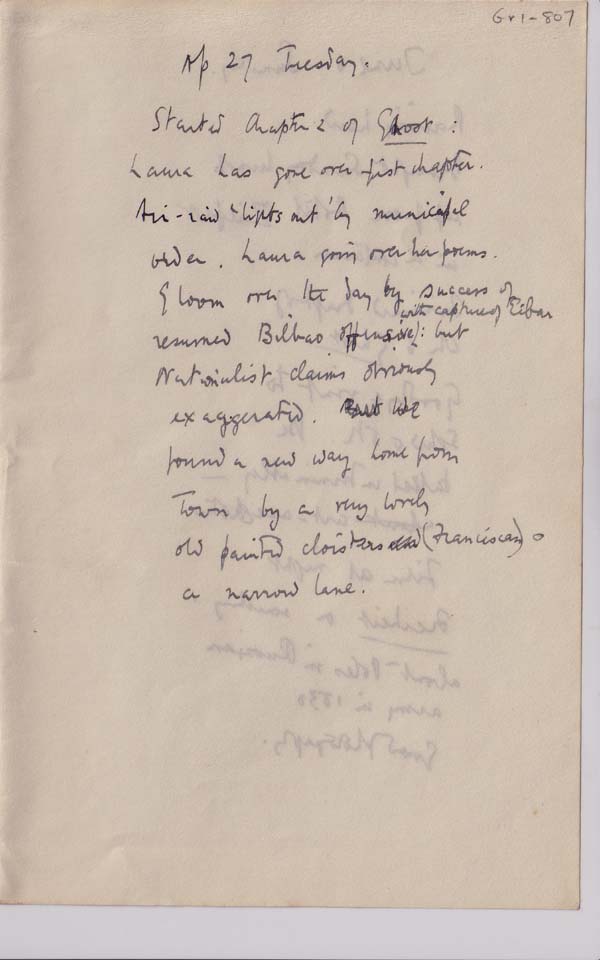 Gr1-807
Ap 27 Tuesday.
Started Chapter 2 of Ghost :
Laura has gone over first chapter.
Air-raid 'lights out' by municipal
order. Laura going over her poems.
Gloom over the day by success of
resumed Bilbao offensive (with capture of Eibar): but
Nationalist claims obviously
exaggerated. But we
found a new way home from
Town by a very lovely
old painted cloisters (Franciscan) &
a narrow lane.